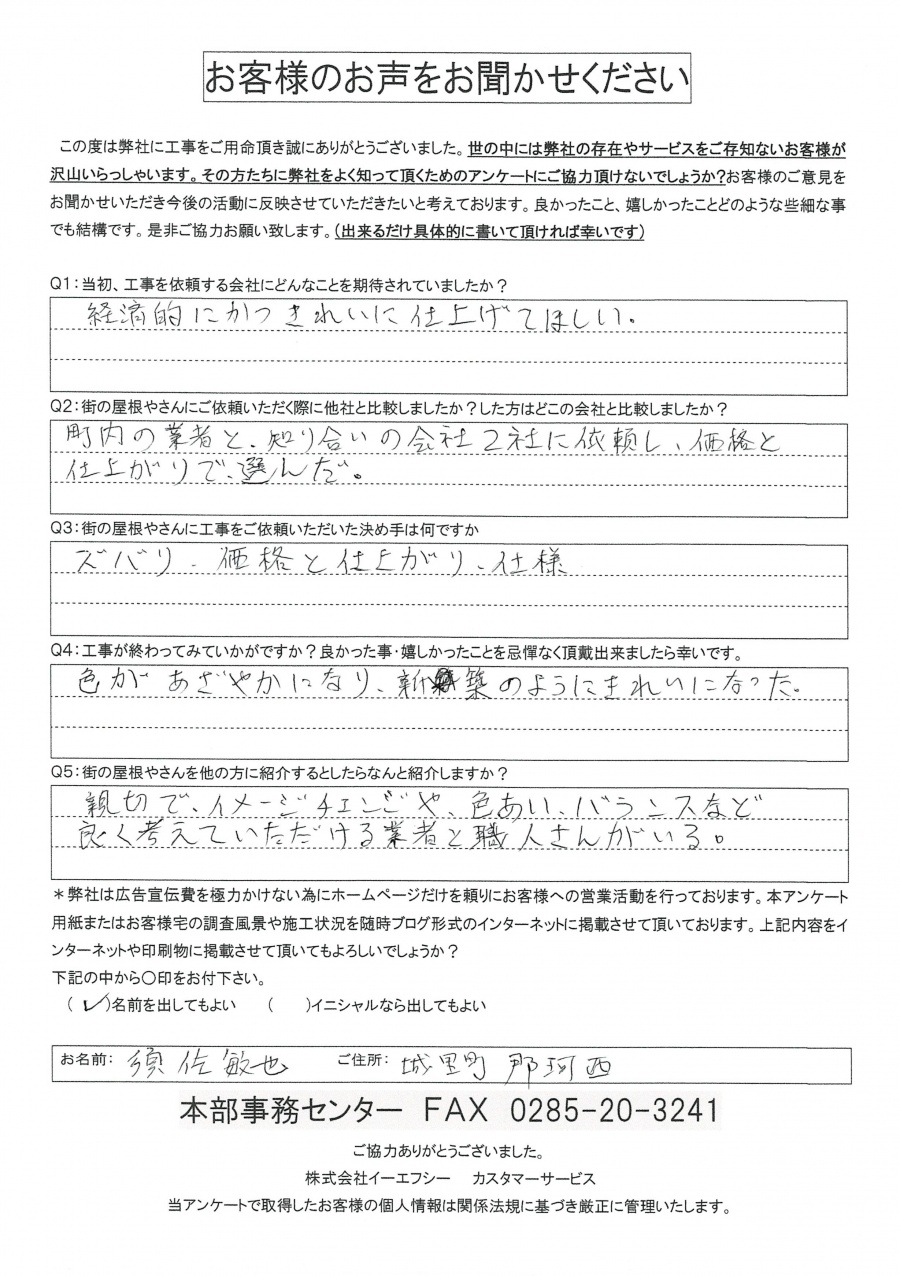 お客様のお声をお聞かせください
この度は弊社に工事をご用命頂き誠にありがとうございました。世の中には弊社の存在やサービスをご存知ないお客様が
沢山いらっしゃいます。その方たちに弊社をよく知って頂くためのアンケートにご協力頂けないでしょうか?お客様のご意見を
お聞かせいただき今後の活動に反映させていただきたいと考えております。良かったこと、嬉しかったことどのような些細な事
でも結構です。是非ご協力お願い致します。(出来るだけ具体的に書いて頂ければ幸いです)
Q1:当初、工事を依頼する会社にどんなことを期待されていましたか?
経済的にかつきれいに仕上げてほしい。
Q2:街の屋根やさんにご依頼いただく際に他社と比較しましたか?した方はどこの会社と比較しましたか?
町内の業者と、知り合いの会社2社に依頼し、価格と
仕上がりで、選んだ。
Q3:街の屋根やさんに工事をご依頼いただいた決め手は何ですか
ズバリ、価格と仕上がり、仕様
Q4:工事が終わってみていかがですか?良かった事・嬉しかったことを忌憚なく頂戴出来ましたら幸いです。
色があざやかになり、新築のようにきれいになった。
Q5:街の屋根やさんを他の方に紹介するとしたらなんと紹介しますか?
親切で、イメージチェンジや、色あい、バランスなど
良く考えていただける業者と職人さんがいる。
*弊社は広告宣伝費を極力かけない為にホームページだけを頼りにお客様への営業活動を行っております。本アンケート
用紙またはお客様宅の調査風景や施工状況を随時ブログ形式のインターネットに掲載させて頂いております。上記内容をイ
ンターネットや印刷物に掲載させて頂いてもよろしいでしょうか?
下記の中から〇印をお付下さい。
(✓)名前を出してもよい ( )イニシャルなら出してもよい
お名前: 須佐敏也 ご住所: 城里町 那珂西
本部事務センター FAX 0285-20-3241
ご協力ありがとうございました。
株式会社イーエフシー カスタマーサービス
当アンケートで取得したお客様の個人情報は関係法規に基づき厳正に管理いたします。